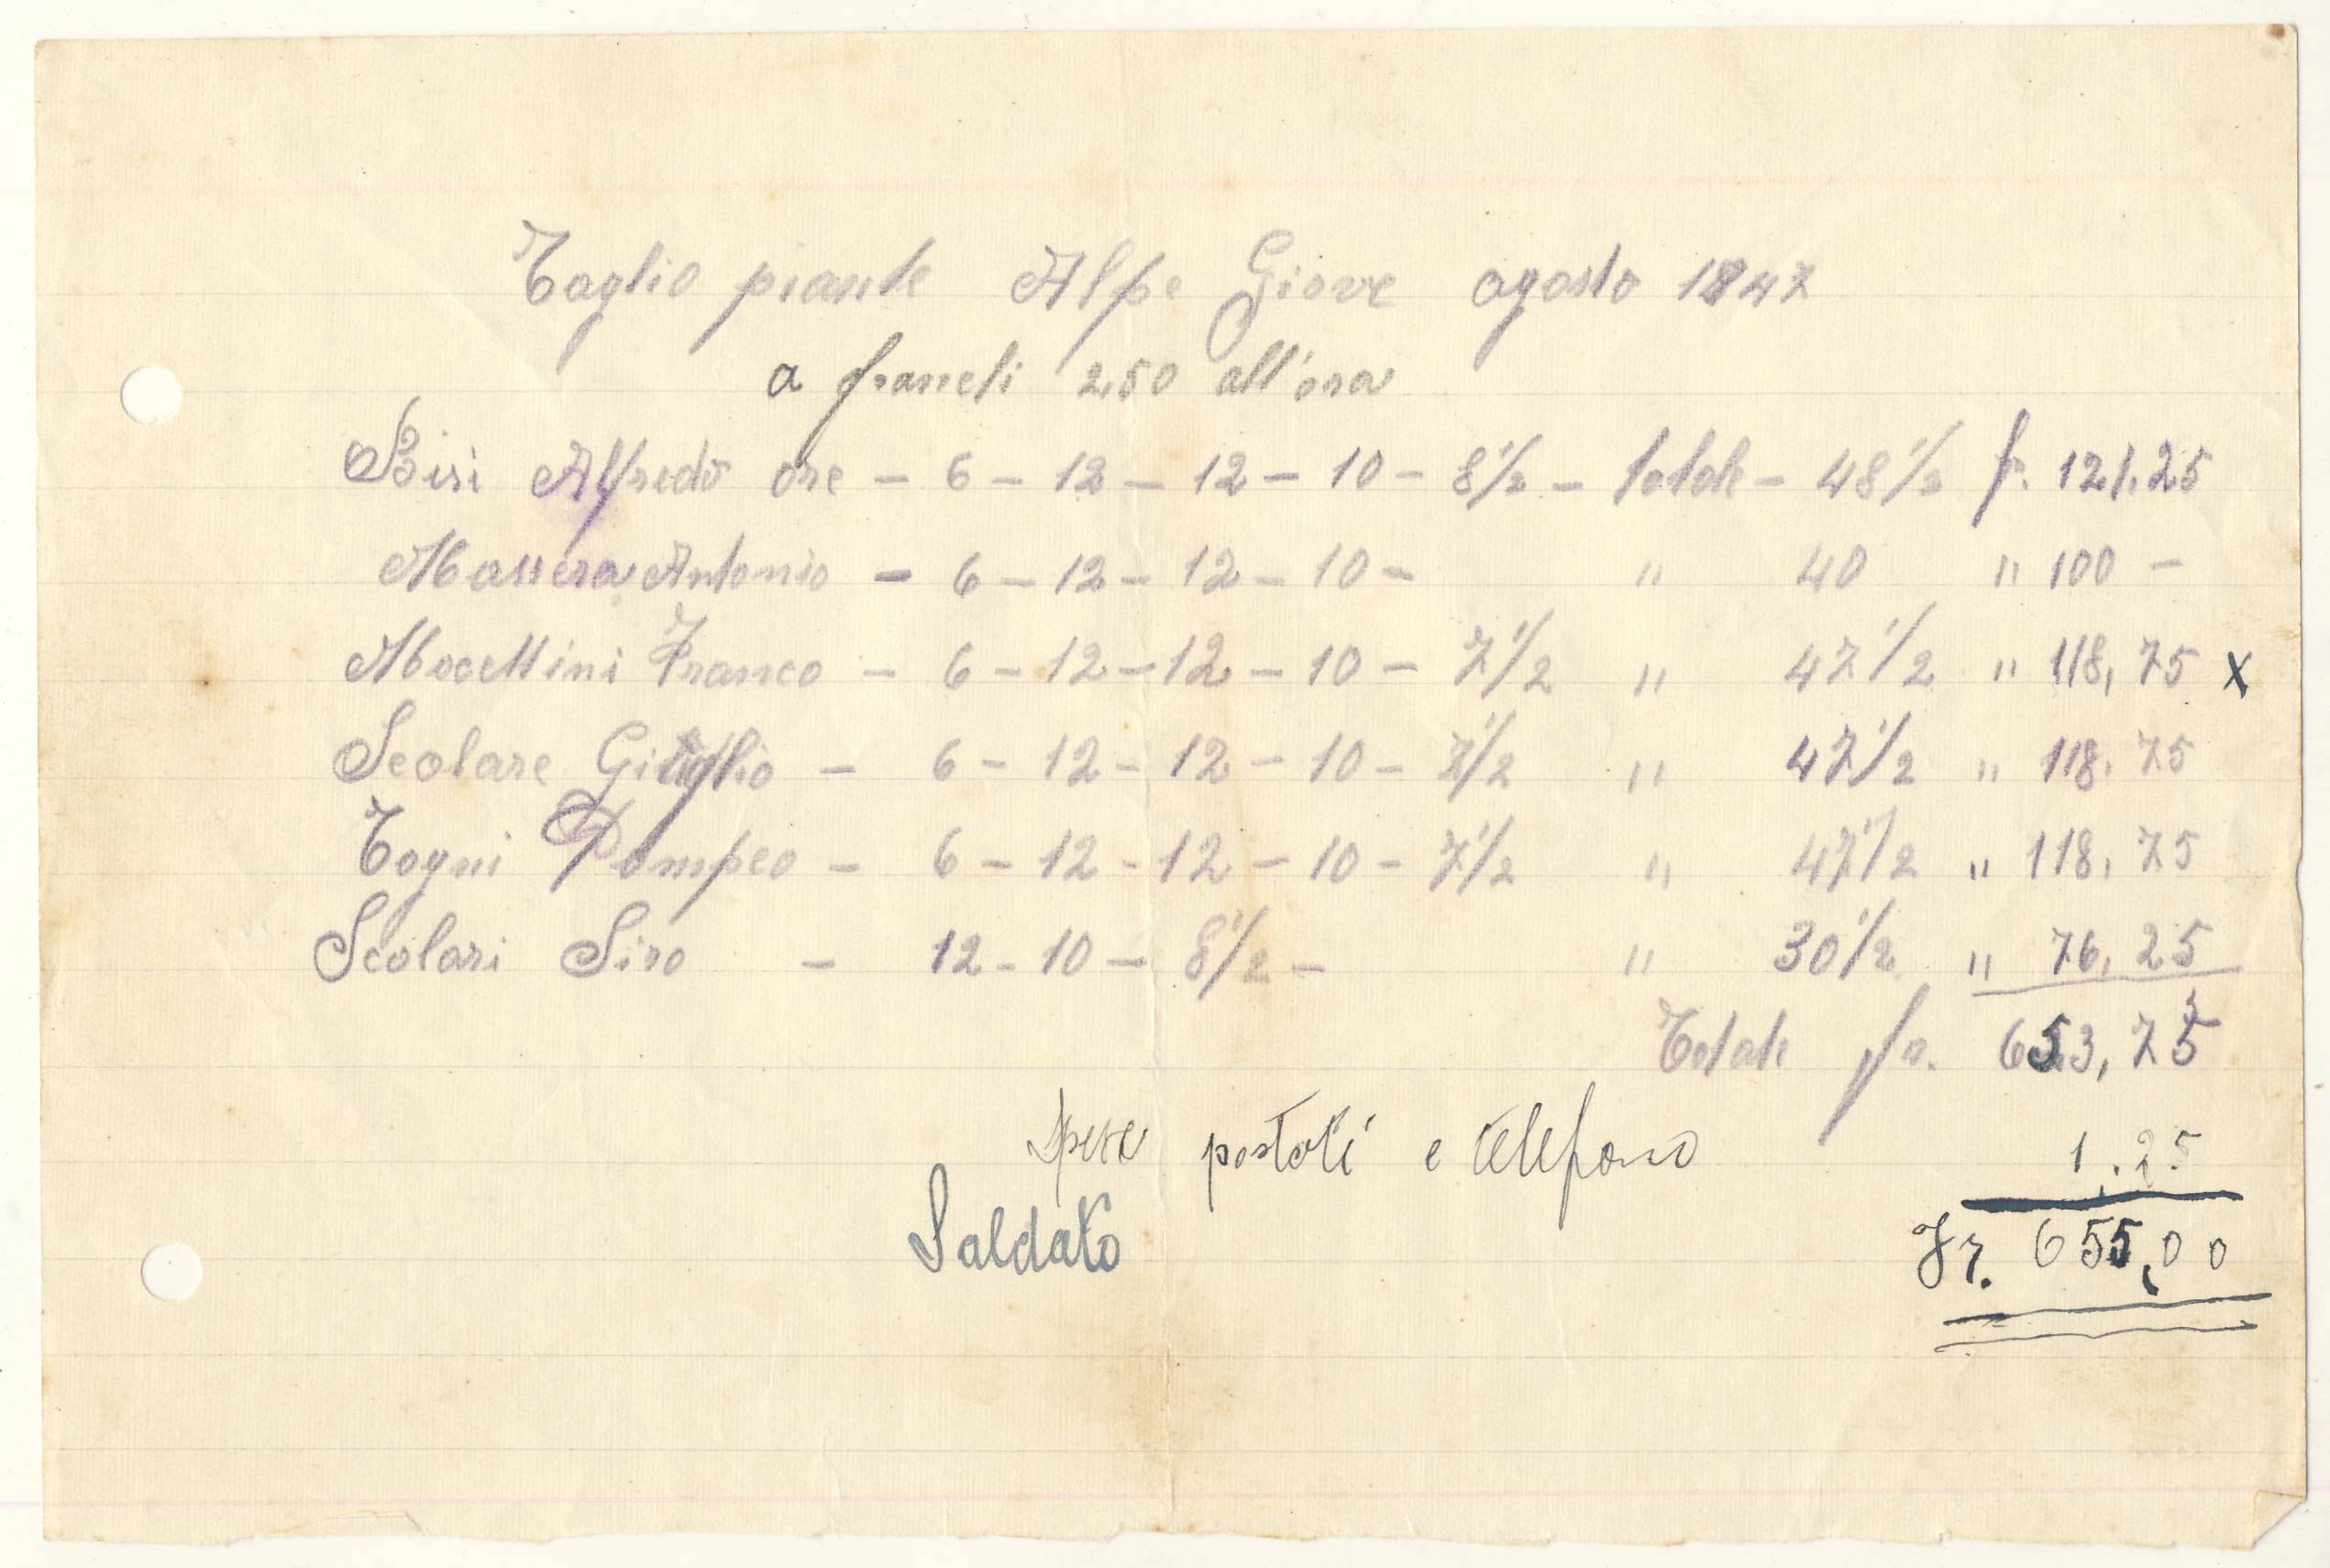 Taglio piante Alpe Giove agosto 1947
a franchi 2,50 all'ora
Bisi Alfredo ore - 6 - 12 - 12 - 10 - 8 1/2 - totale - 48 1/2 f. 121.25
Massera Antonio - 6 - 12 - 12 - 10 - " 40 " 100 -
Mocettini Franco - 6 - 12 - 12 - 10 - 7 1/2 " 47 1/2 " 118,75 x
Scolare Giuglio - 6 - 12 - 12 - 10 - 7 1/2 " 47 1/2 " 118.75
Togni Pompeo - 6 - 12 - 12 - 10 - 7 1/2 " 47 1/2 " 118,75
Scolari Siro - 12 - 10 - 8 1/2 - " 30 1/2 " 76,25
Totale fr. 653,75
spese postali e telefono 1.25
Saldato Fr. 655,00